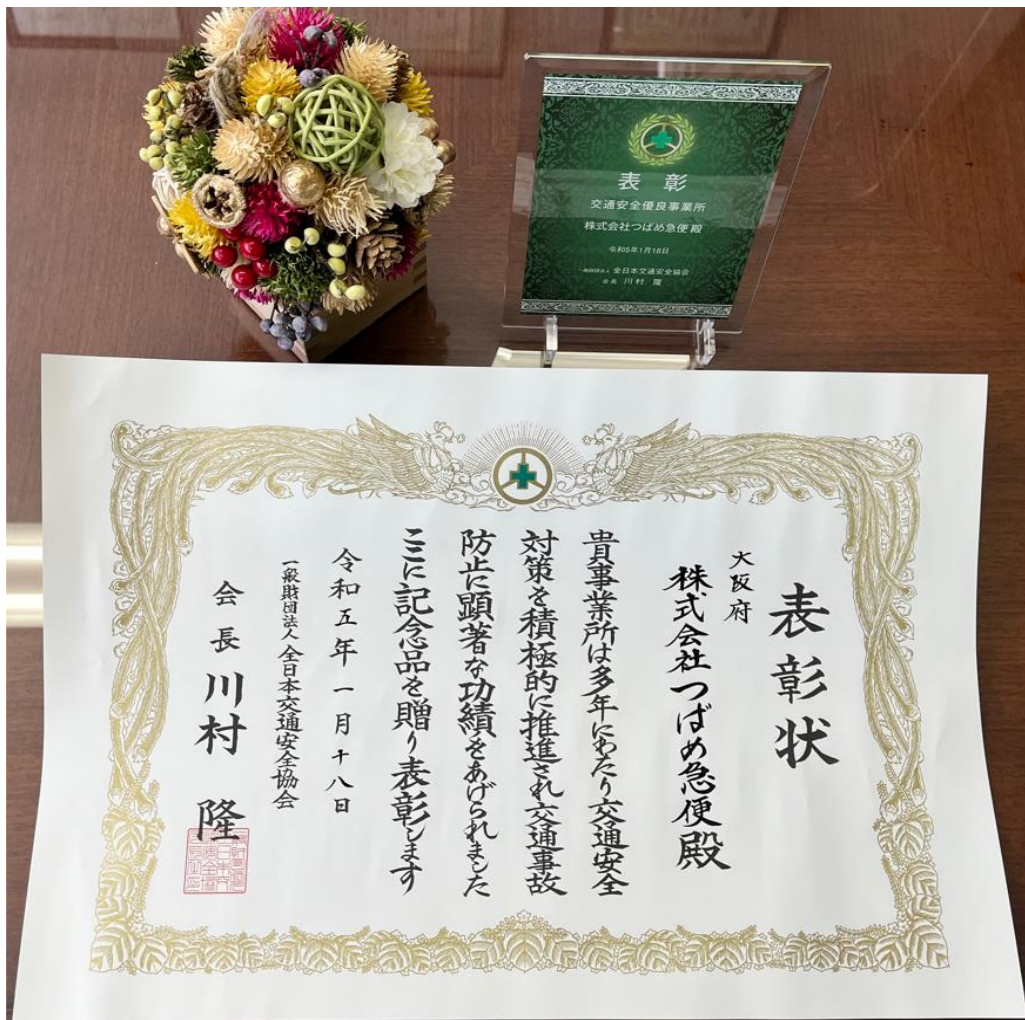 表彰
交通安全優良事業所
株式会社つばめ急便殿
令和5年1月18日
一般財団法人 全日本交通安全協会
会長 川村 隆
表彰状
大阪府
株式会社つばめ急便殿
貴事業所は多年にわたり交通安全
対策を積極的に推進され交通事故
防止に顕著な功績をあげられました
ここに記念品を贈り表彰します
令和五年一月十八日
一般財団法人 全日本交通安全協会
会長 川村 隆